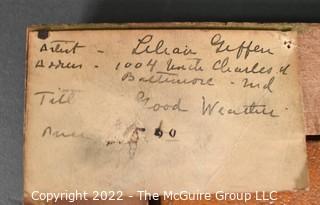 Artist - Lilian Giffen
Address - 1004 North Charles st
Baltimore - Md
Title Good Weather
60
Copyright © 2022 - The McGuire Group / LLC